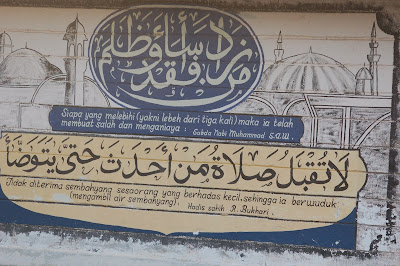 من زاد فقد أساء وظلم
Siapa yang melebihi (yakni lebeh dari tiga kali) maka ia telah
membuat salah dan menganiaya : Sabda Nabi Muhammad S.A.W.
لَا تُقْبَلُ صَلَاةُ مَنْ أَحْدَثَ حَتَّى يَتَوَضَّأَ
Tidak diterima sembahyang sesaorang yang berhadas kecil, sehingga ia berwuduk
(mengambil air sembahyang). Hadis sahih R. Bukhari.